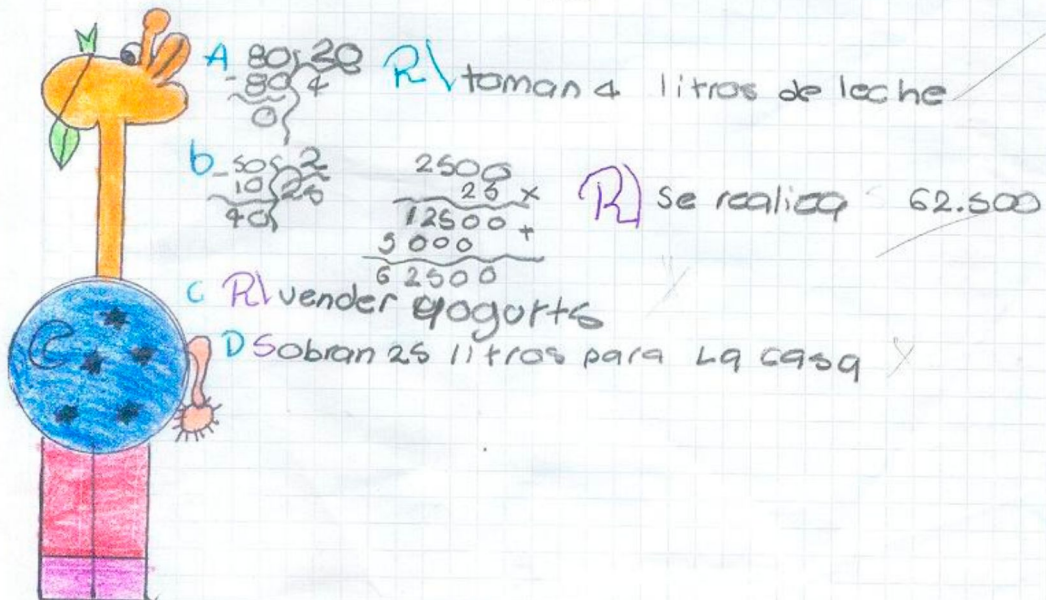 A 80 20 R\ toman 4 litros de leche
-80 4
0
b -50 2
10 25
40
2500
25 x
12500 +
5000
62500
R) Se realiza 62.500
C R\ vender yogurts
D Sobran 25 litros para La casa